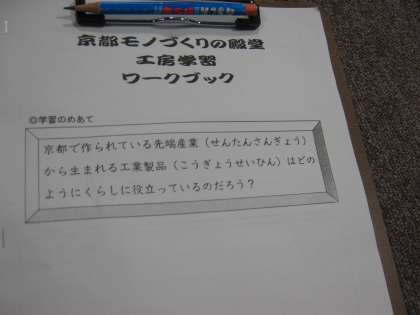 京都モノづくりの殿堂
工房学習
ワークブック
◎学習のめあて
京都で作られている先端産業(せんたんさんぎょう)
から生まれる工業製品(こうぎょうせいひん)はどの
ようにくらしに役立っているのだろう?